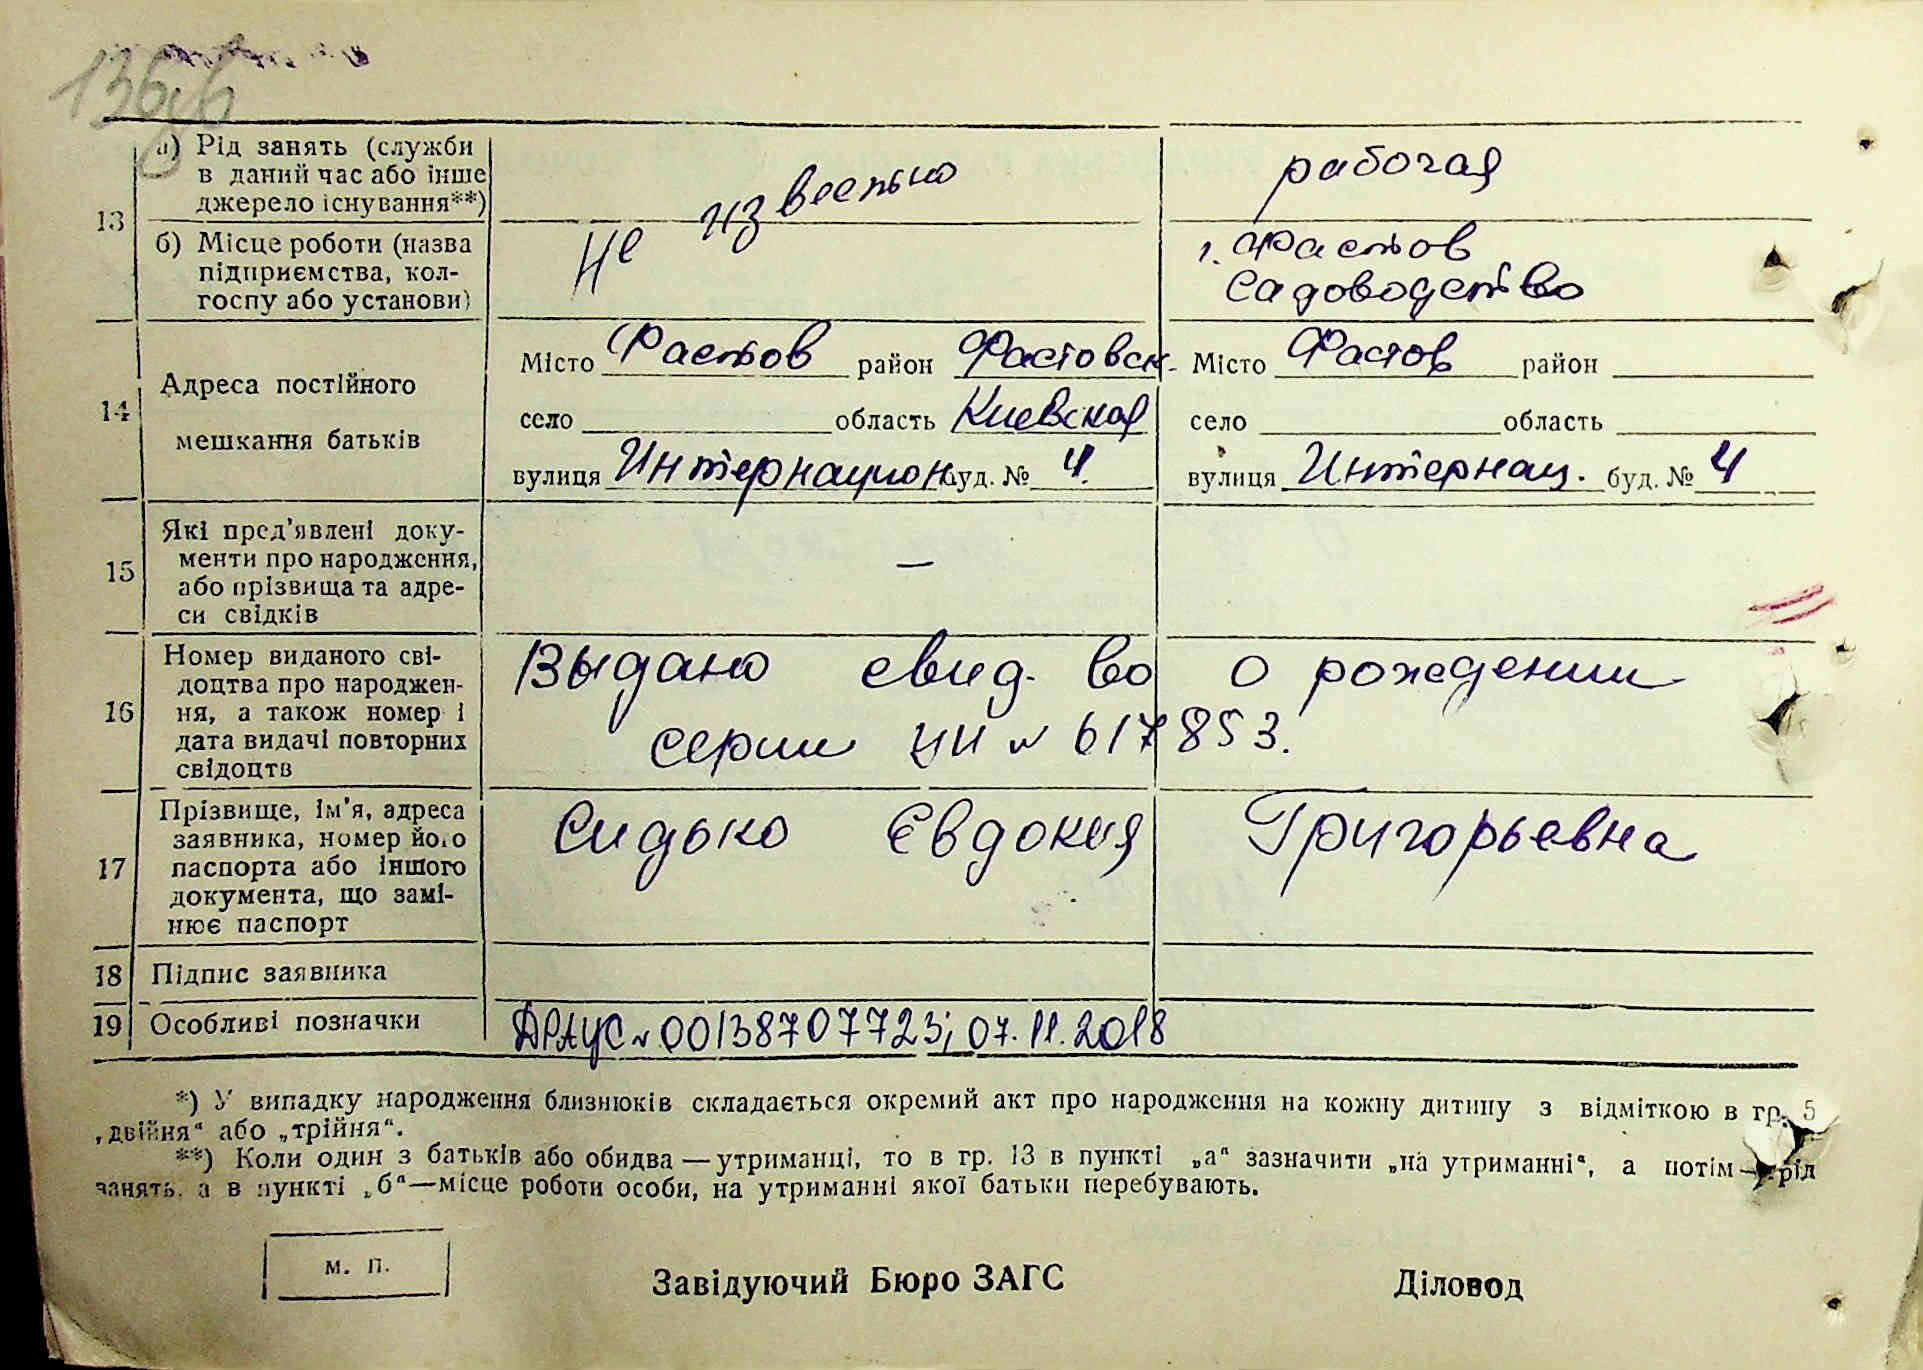 136
13
а) Рід занять (служби
в даний час або інше
джерело існування**)
не известно
рабочая
б) Місце роботи (назва
підприємства, кол-
госпу або установи)
г. Фастов
Садоводство
14
Адреса постійного
мешкання батьків
Місто Фастов район Фастовск.
село область Киевская
вулиця Интернацион. буд. № 4.
Місто Фастов район
село область
вулиця Интернац. буд. № 4
15
Які пред'явлені доку-
менти про народження,
або прізвища та адре-
си свідків
—
16
Номер виданого сві-
доцтва про народжен-
ня, а також номер і
дата видачі повторних
свідоцтв
Выдано свид-во о рождении
серии № 617853.
17
Прізвище, ім'я, адреса
заявника, номер його
паспорта або іншого
документа, що замі-
нює паспорт
Сидько Євдокия Григорьевна
18 Підпис заявника
19 Особливі позначки
ДРАЦС № 00138707723; 07.11.2018
*) У випадку народження близнюків складається окремий акт про народження на кожну дитину з відміткою в гр. 5
„двійня“ або „трійня“.
**) Коли один з батьків або обидва — утриманці, то в гр. 13 в пункті „а“ зазначити „на утриманні“, а потім — рід
занять, а в пункті „б“—місце роботи особи, на утриманні якої батьки перебувають.
м. п.
Завідуючий Бюро ЗАГС
Діловод